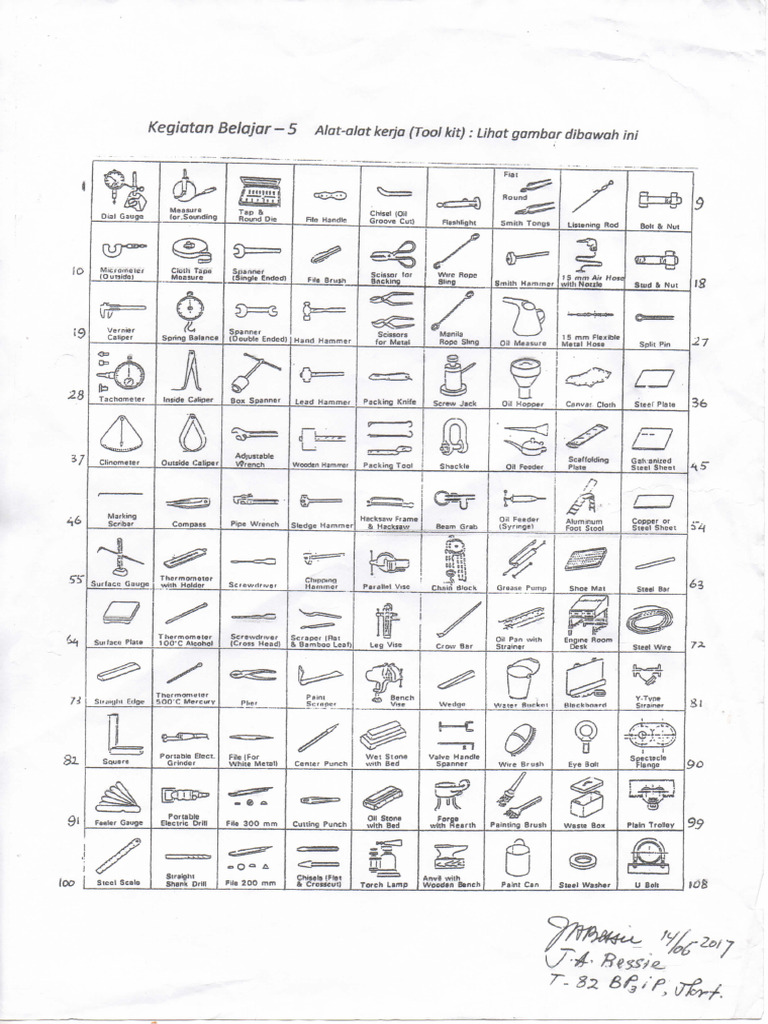 Kegiatan Belajar – 5 Alat-alat kerja (Tool kit) : Lihat gambar dibawah ini
1
Dial Gauge
Measure
for Sounding
Tap &
Round Die
File Handle
Chisel (Oil
Groove Cut)
Flashlight
Flat
Round
Smith Tongs
Listening Rod
Bolt & Nut
9
10
Micrometer
(Outside)
Cloth Tape
Measure
Spanner
(Single Ended)
File Brush
Scissor for
Backing
Wire Rope
Sling
Smith Hammer
15 mm Air Hose
with Nozzle
Stud & Nut
18
19
Vernier
Caliper
Spring Balance
Spanner
(Double Ended)
Hand Hammer
Scissors
for Metal
Manila
Rope Sling
Oil Measure
15 mm Flexible
Metal Hose
Split Pin
27
28
Tachometer
Inside Caliper
Box Spanner
Lead Hammer
Packing Knife
Screw Jack
Oil Hopper
Canvar Cloth
Steel Plate
36
37
Clinometer
Outside Caliper
Adjustable
Wrench
Wooden Hammer
Packing Tool
Shackle
Oil Feeder
Scaffolding
Plate
Galvanized
Steel Sheet
45
46
Marking
Scriber
Compass
Pipe Wrench
Sledge Hammer
Hacksaw Frame
& Hacksaw
Beam Grab
Oil Feeder
(Syringe)
Aluminum
Foot Stool
Copper or
Steel Sheet
54
55
Surface Gauge
Thermometer
with Holder
Screwdriver
Chipping
Hammer
Parallel Vise
Chain Block
Grease Pump
Shoe Mat
Steel Bar
63
64
Surface Plate
Thermometer
100°C Alcohol
Screwdriver
(Cross Head)
Scraper (Rat
& Bamboo Leaf)
Leg Vise
Crow Bar
Oil Pan with
Strainer
Engine Room
Desk
Steel Wire
72
73
Straight Edge
Thermometer
500°C Mercury
Plier
Paint
Scraper
Bench
Vise
Wedge
Water Bucket
Blackboard
Y-Type
Strainer
81
82
Square
Portable Elect.
Grinder
File (For
White Metal)
Center Punch
Wet Stone
with Bed
Valve Handle
Spanner
Wire Brush
Eye Bolt
Spectacle
Flange
90
91
Feeler Gauge
Portable
Electric Drill
File 300 mm
Cutting Punch
Oil Stone
with Bed
Forge
with Hearth
Painting Brush
Waste Box
Plain Trolley
99
100
Steel Scale
Straight
Shank Drill
File 200 mm
Chisels (Flat
& Crosscut)
Torch Lamp
Anvil with
Wooden Bench
Paint Can
Steel Washer
U Bolt
108
14/06 2017
J.A. Bessie
T-82 BP3iP, Jkrt.